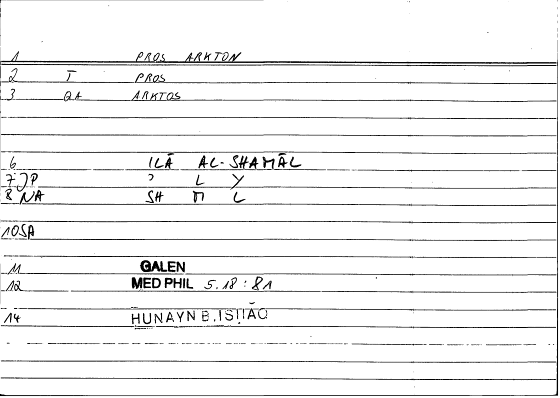 1 PROS ARKTON
2 T PROS
3 QA ARKTOS
6 ILĀ AL-SHAMĀL
7 JP ʾ L Y
8 NA SH M L
10 SA
11 GALEN
12 MED PHIL 5.18 : 81
14 HUNAYN B. ISḤĀQ